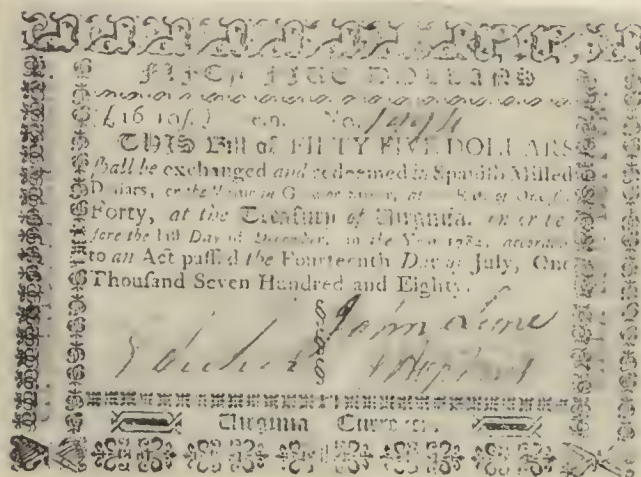 FIFTY FIVE DOLLARS
(£16 10ſ.) No.
THIS Bill of FIFTY FIVE DOLLARS
ſhall be exchanged and redeemed in Spaniſh Milled
Dollars, or the Value in Gold or Silver, at Rate of One for
Forty, at the Treaſury of Virginia, on or be
fore the Day of December, in the Year according
to an Act paſſed the Fourteenth Day of July, One
Thouſand Seven Hundred and Eighty.
John
Hopkins
Virginia Currency.